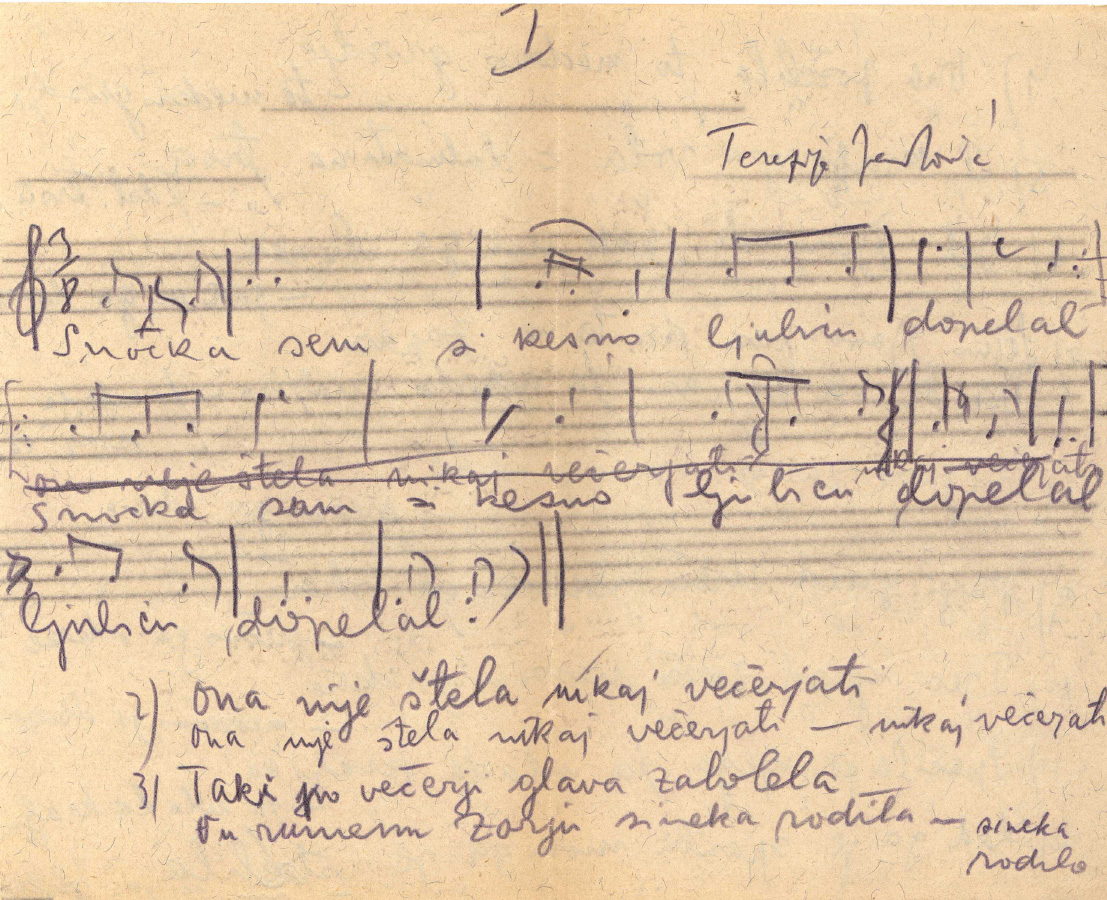 I
Terezija
3/8
Snočka sem si kesno ljubicu dopelal
ona nije štela nikaj večerjati nikaj večerjati
Snočka sam si kesno ljubicu dopelal
ljubicu dopelal
2) Ona nije štela nikaj večerjati
ona nije štela nikaj večerjati – nikaj večerjati
3) Taki po večerji glava zabolela
rumenu zorju sineka rodila – sineka
rodilo